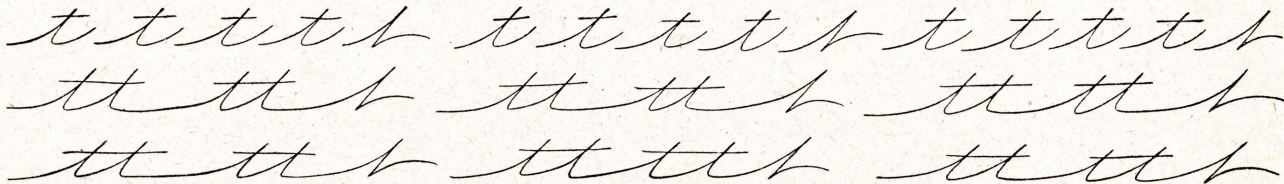 ttttt ttttt ttttt
ttttt ttttt ttttt
ttttt ttttt ttttt